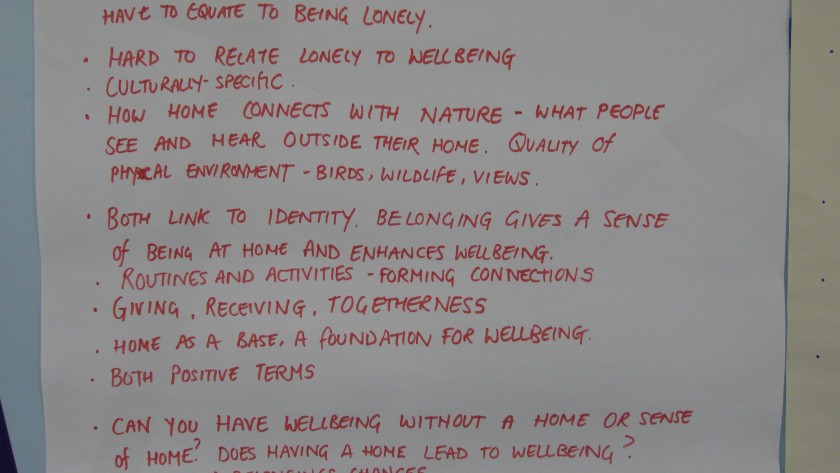 HAVE TO EQUATE TO BEING LONELY.
• HARD TO RELATE LONELY TO WELLBEING
• CULTURALLY-SPECIFIC.
• HOW HOME CONNECTS WITH NATURE - WHAT PEOPLE
SEE AND HEAR OUTSIDE THEIR HOME. QUALITY OF
PHYSICAL ENVIRONMENT - BIRDS, WILDLIFE, VIEWS.
• BOTH LINK TO IDENTITY. BELONGING GIVES A SENSE
OF BEING AT HOME AND ENHANCES WELLBEING.
• ROUTINES AND ACTIVITIES - FORMING CONNECTIONS
• GIVING, RECEIVING, TOGETHERNESS
• HOME AS A BASE, A FOUNDATION FOR WELLBEING.
• BOTH POSITIVE TERMS
• CAN YOU HAVE WELLBEING WITHOUT A HOME OR SENSE
OF HOME? DOES HAVING A HOME LEAD TO WELLBEING?